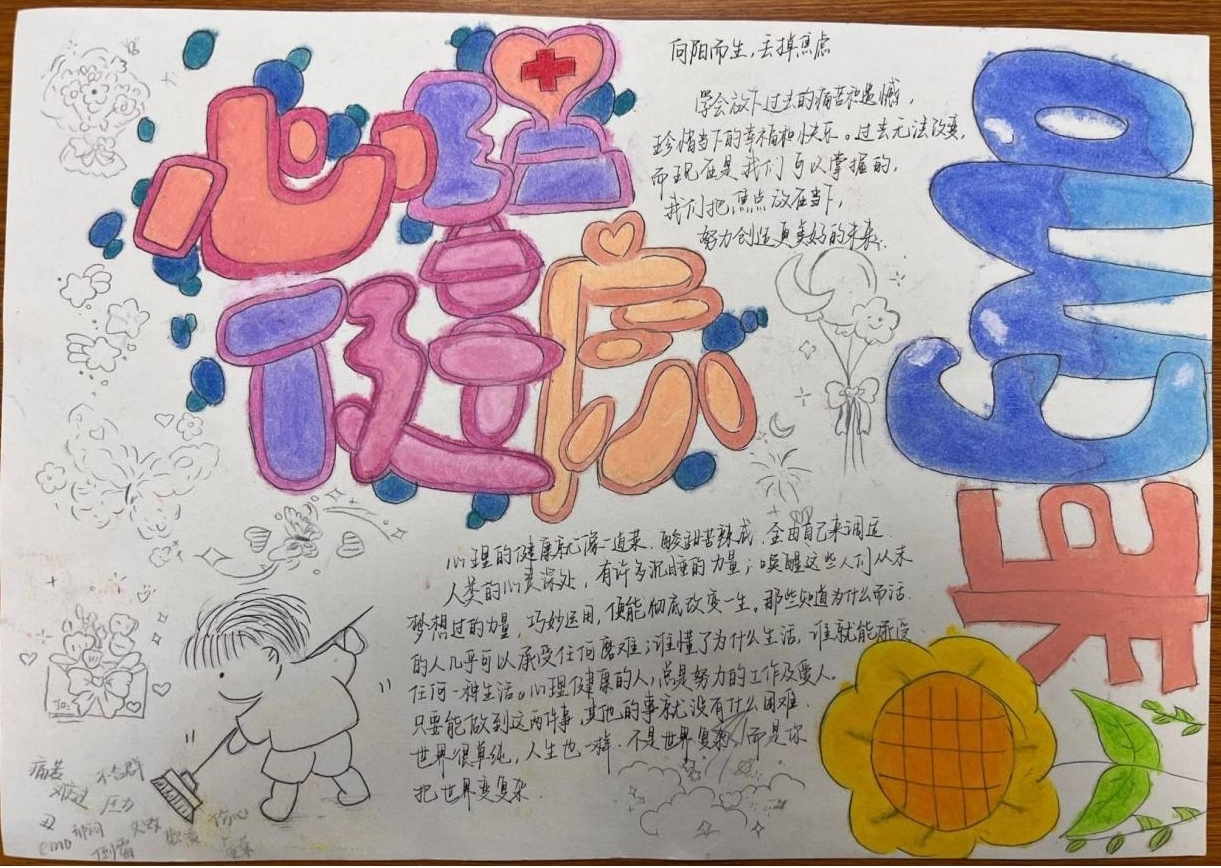 心理
健康
向阳而生，丢掉焦虑
学会放下过去的痛苦和遗憾，
珍惜当下的幸福和快乐。过去无法改变，
而现在是我们可以掌握的，
我们把焦点放在当下，
努力创造更美好的未来。
EMO
退
心理的健康就像一道菜，酸甜苦辣咸，全由自己来调适
人类的心灵深处，有许多沉睡的力量；唤醒这些人们从未
梦想过的力量，巧妙运用，便能彻底改变一生。那些知道为什么而活
的人几乎可以承受任何磨难；谁懂了为什么生活，谁就能承受
任何一种生活。心理健康的人，总是努力的工作及爱人。
只要能做到这两件事，其他的事就没有什么困难
世界很单纯，人生也一样，不是世界复杂，而是你
把世界变复杂
TO:
痛苦 不合群
难过 压力
丑 郁闷 失败 伤心
emo 倒霉